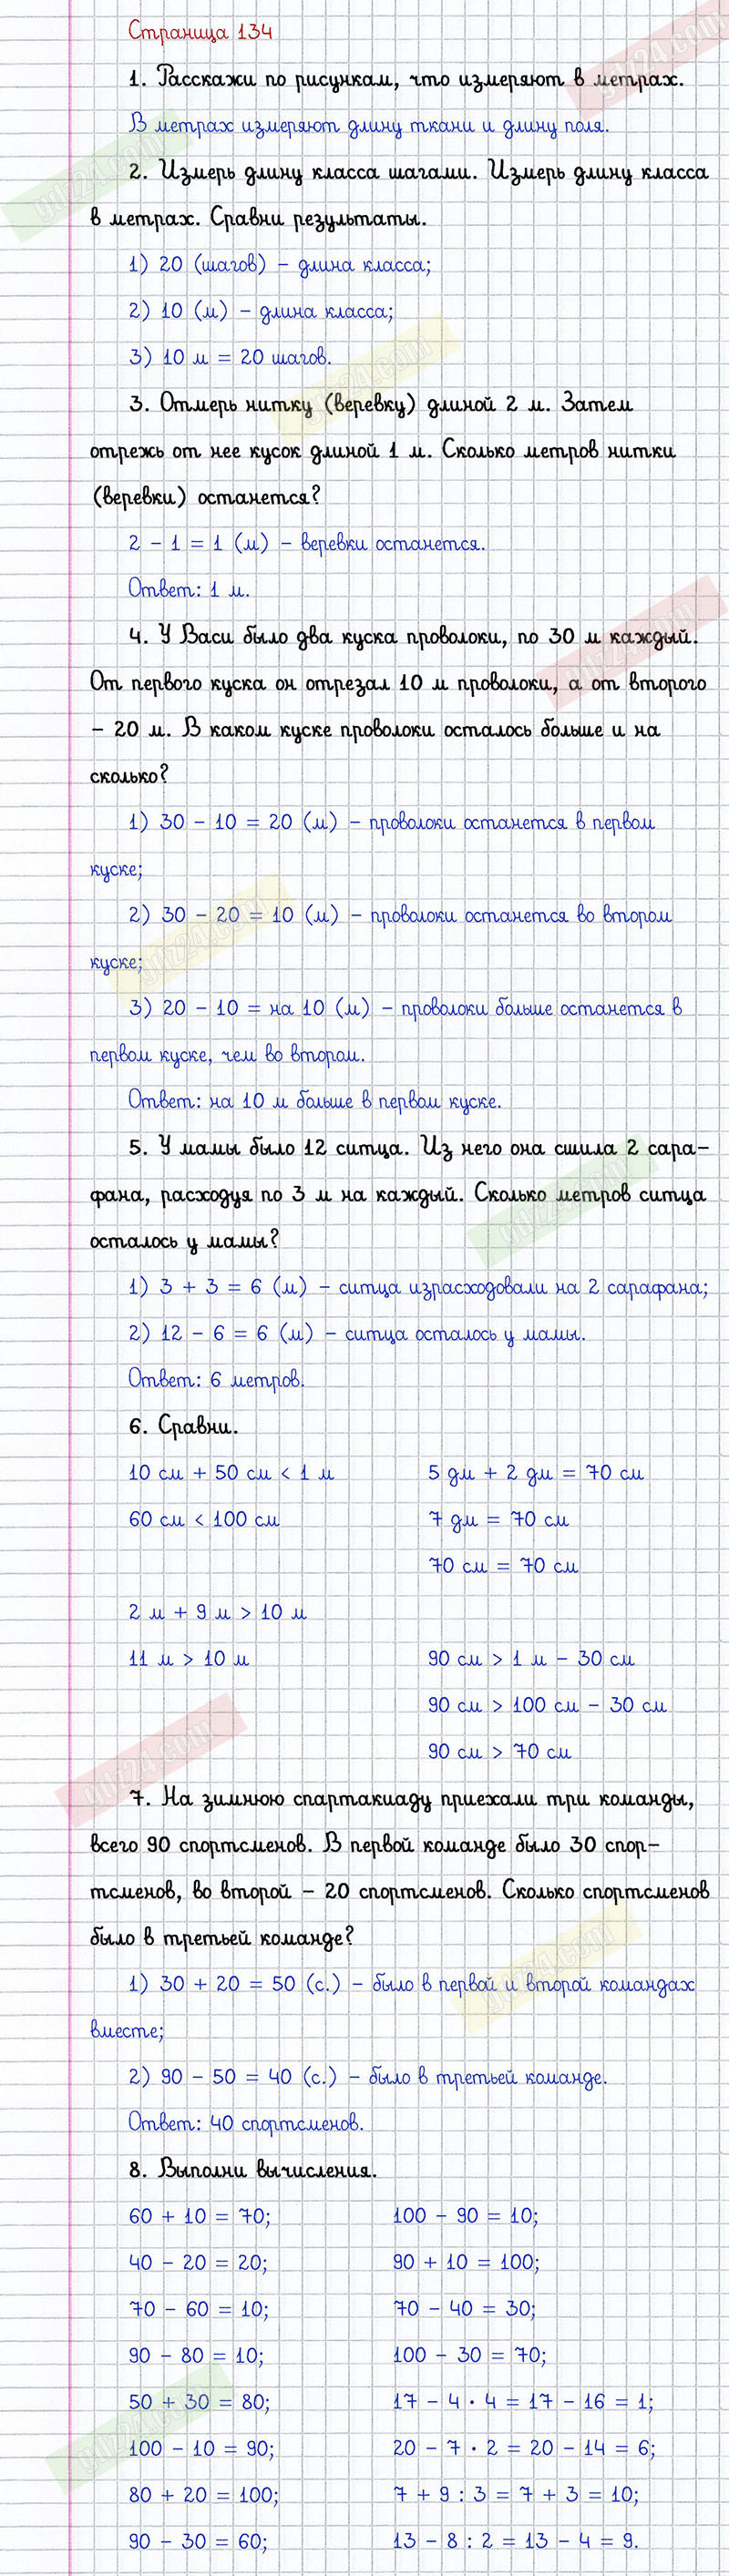 Страница 134
1. Расскажи по рисункам, что измеряют в метрах.
В метрах измеряют длину ткани и длину поля.
2. Измерь длину класса шагами. Измерь длину класса
в метрах. Сравни результаты.
1) 20 (шагов) - длина класса;
2) 10 (м) - длина класса;
3) 10 м = 20 шагов.
3. Отмерь нитку (веревку) длиной 2 м. Затем
отрежь от нее кусок длиной 1 м. Сколько метров нитки
(веревки) останется?
2 - 1 = 1 (м) - веревки останется.
Ответ: 1 м.
4. У Васи было два куска проволоки, по 30 м каждый.
От первого куска он отрезал 10 м проволоки, а от второго
- 20 м. В каком куске проволоки осталось больше и на
сколько?
1) 30 - 10 = 20 (м) - проволоки останется в первом
куске;
2) 30 - 20 = 10 (м) - проволоки останется во втором
куске;
3) 20 - 10 = на 10 (м) - проволоки больше останется в
первом куске, чем во втором.
Ответ: на 10 м больше в первом куске.
5. У мамы было 12 ситца. Из него она сшила 2 сара-
фана, расходуя по 3 м на каждый. Сколько метров ситца
осталось у мамы?
1) 3 + 3 = 6 (м) - ситца израсходовали на 2 сарафана;
2) 12 - 6 = 6 (м) - ситца осталось у мамы.
Ответ: 6 метров.
6. Сравни.
10 см + 50 см < 1 м 5 дм + 2 дм = 70 см
60 см < 100 см 7 дм = 70 см
70 см = 70 см
2 м + 9 м > 10 м
11 м > 10 м 90 см > 1 м - 30 см
90 см > 100 см - 30 см
90 см > 70 см
7. На зимнюю спартакиаду приехали три команды,
всего 90 спортсменов. В первой команде было 30 спор-
тсменов, во второй - 20 спортсменов. Сколько спортсменов
было в третьей команде?
1) 30 + 20 = 50 (с.) - было в первой и второй командах
вместе;
2) 90 - 50 = 40 (с.) - было в третьей команде.
Ответ: 40 спортсменов.
8. Выполни вычисления.
60 + 10 = 70; 100 - 90 = 10;
40 - 20 = 20; 90 + 10 = 100;
70 - 60 = 10; 70 - 40 = 30;
90 - 80 = 10; 100 - 30 = 70;
50 + 30 = 80; 17 - 4 · 4 = 17 - 16 = 1;
100 - 10 = 90; 20 - 7 · 2 = 20 - 14 = 6;
80 + 20 = 100; 7 + 9 : 3 = 7 + 3 = 10;
90 - 30 = 60; 13 - 8 : 2 = 13 - 4 = 9.